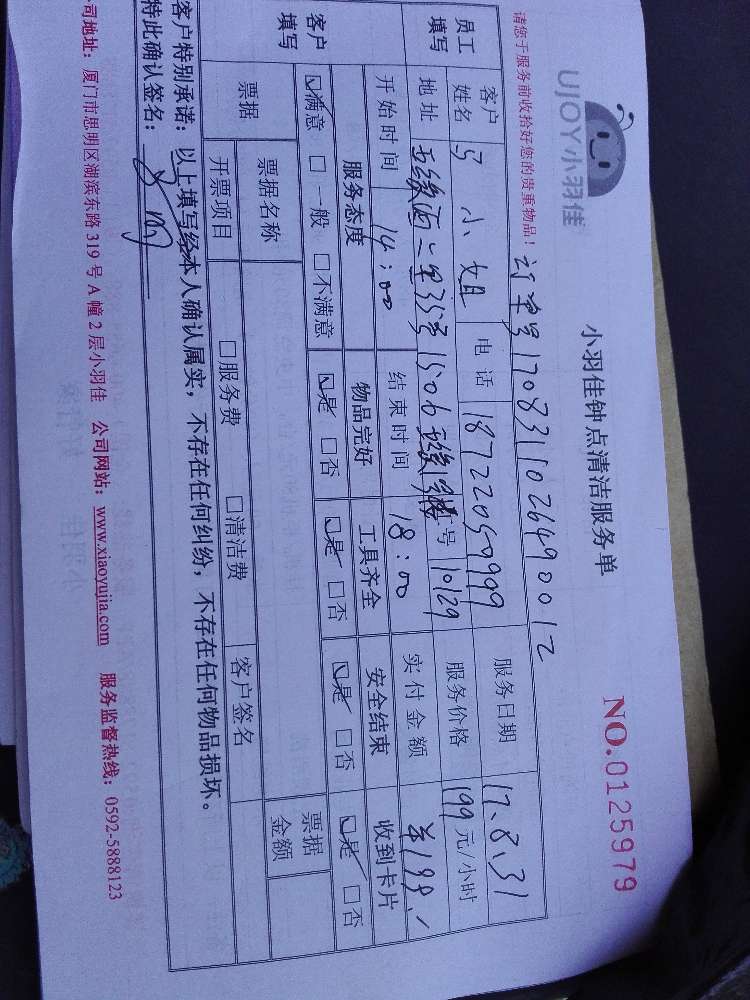 UJOY小羽佳
小羽佳钟点清洁服务单
NO.0125979
请您于服务前收拾好您的贵重物品!
订单号1708311026490012
员工填写
客户姓名
小姐
电话
18722059999
服务日期
17.8.31
地址
五缘西一里35号1506
号
10129
服务价格
199元/小时
开始时间
14:00
结束时间
18:00
实付金额
¥198.
客户填写
服务态度
物品完好
工具齐全
安全结束
收到卡片
☑满意 □一般 □不满意
☑是 □否
☑是 □否
☑是 □否
☑是 □否
票据
票据名称
客户签名
票据金额
开票项目
□服务费 □清洁费
客户特别承诺:以上填写经本人确认属实,不存在任何纠纷,不存在任何物品损坏。
特此确认签名:
公司地址:厦门市思明区湖滨东路319号A幢2层小羽佳 公司网站:www.xiaoyujia.com 服务监督热线:0592-5888123